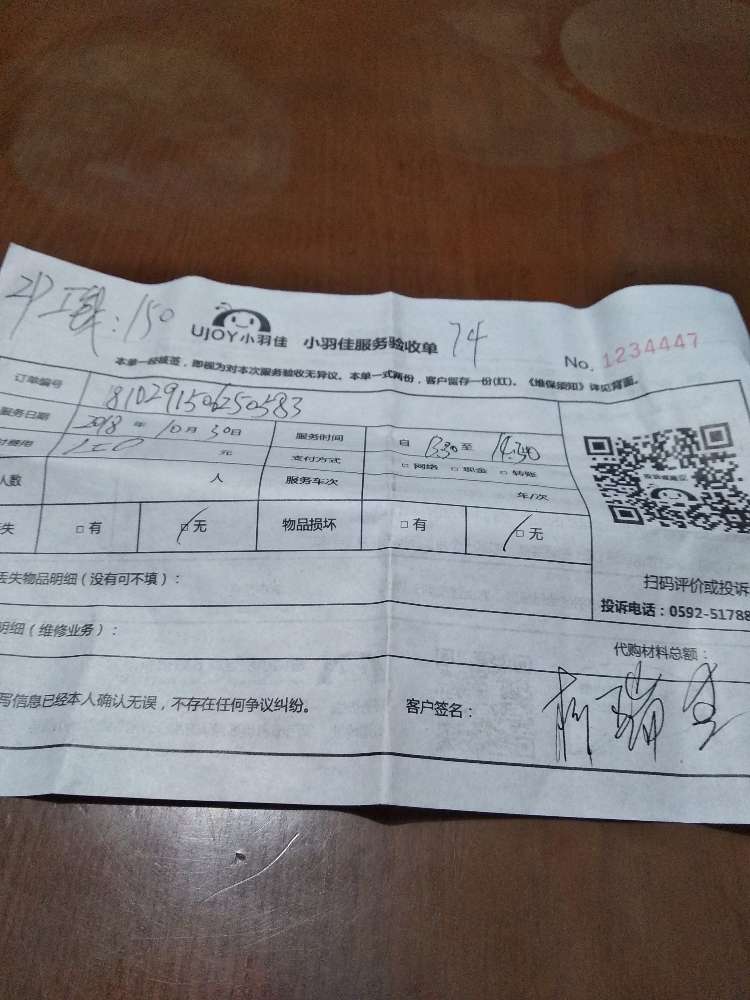 :150
UJOY小羽佳 小羽佳服务验收单 74
No. 1234447
本单一经核签，即视为对本次服务验收无异议。本单一式两份，客户留存一份(红)。《维保须知》详见背面。
订单编号 1810291506250583
服务日期 2018 年 10月 30日 服务时间 自 13:30 至 14:30
付费用 元 支付方式 □网络 □现金 □转账
人数 人 服务车次 车/次
失 □有 □无 物品损坏 □有 □无
扫码评价或投诉
投诉电话：0592-51788
丢失物品明细（没有可不填）：
明细（维修业务）： 代购材料总额：
写信息已经本人确认无误，不存在任何争议纠纷。 客户签名：